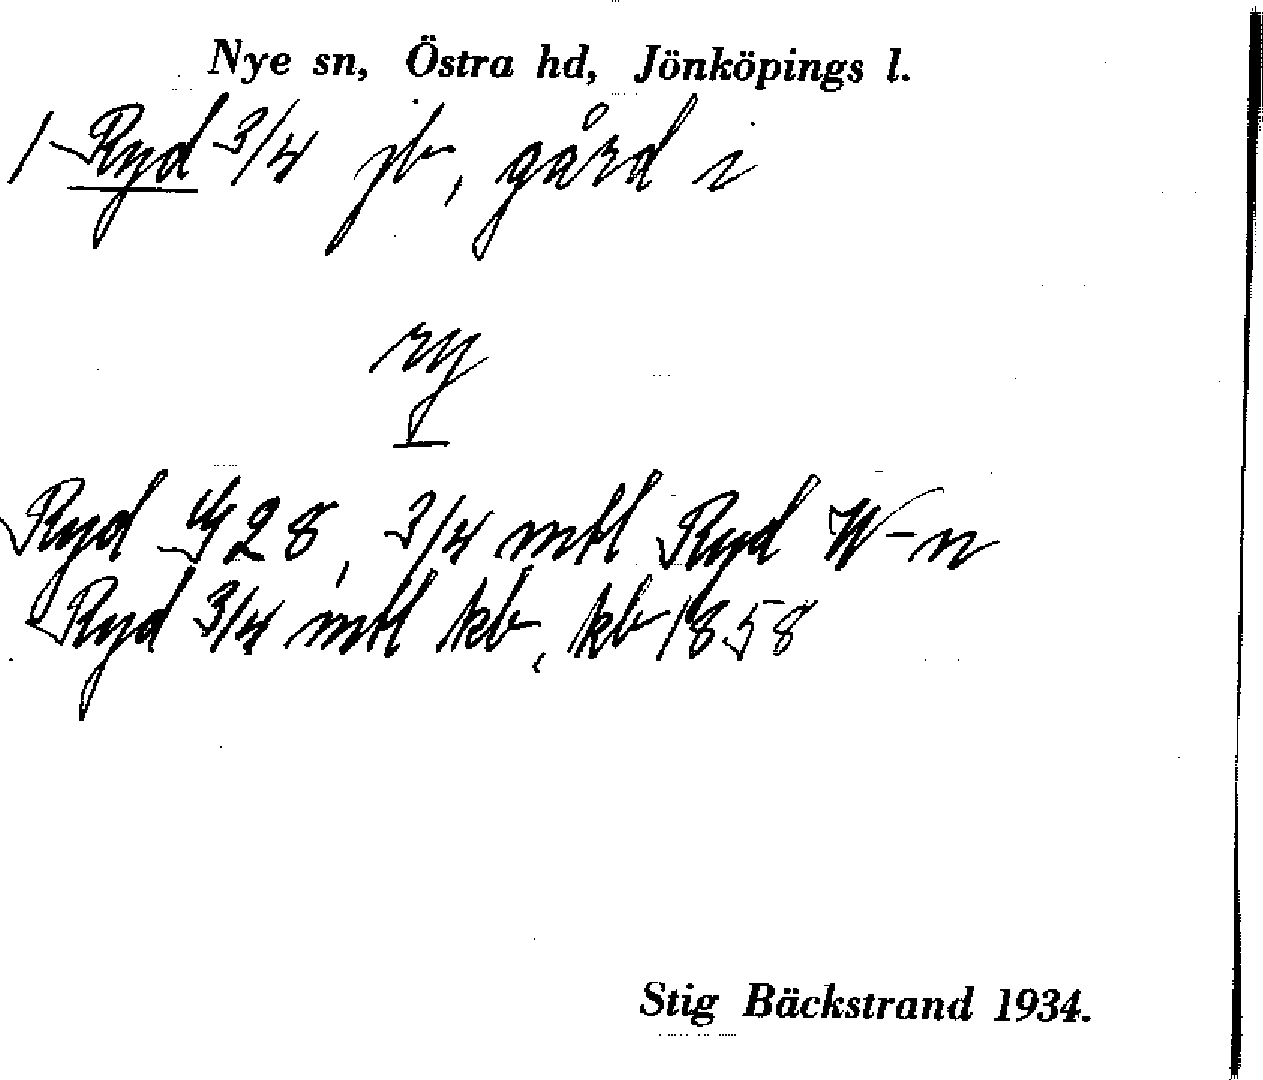 Nye sn, Östra hd, Jönköpings l.
1 Ryd 3/4 jb, gård i
ry
Ryd 28, 3/4 mtl Ryd W-n
Ryd 3/4 mtl kb, kb 1858
Stig Bäckstrand 1934.